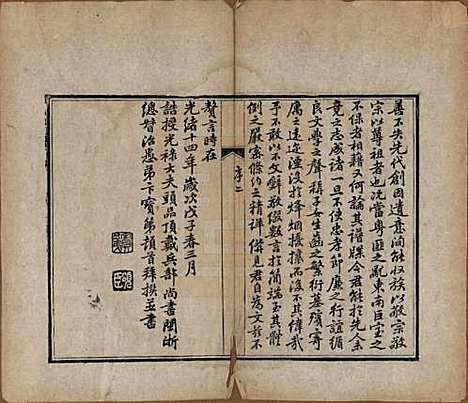 善不失先代創固遺意尚能收族以敬宗敬
宗以尊祖者也况當粵匪之亂東南巨室之
不保者相藉又何論其譜牒今君能於兵金
竟之志威諸一旦不使忠孝節廉之行誼循
良文學之聲稱子女生齒之繁衍墓墳寄
厲之遠近湮沒於烽烟搶攘而後不其偉哉
予不敢以不文辭敬綴數言於簡端至其體
例之嚴密條約之精詳備見君自為文茲不
贅言時在
光緒十四年歲次戊子春三月
誥授光祿大夫頭品頂戴兵部尚書閩浙
總督治愚弟卞寶第頓首拜撰並書
序二